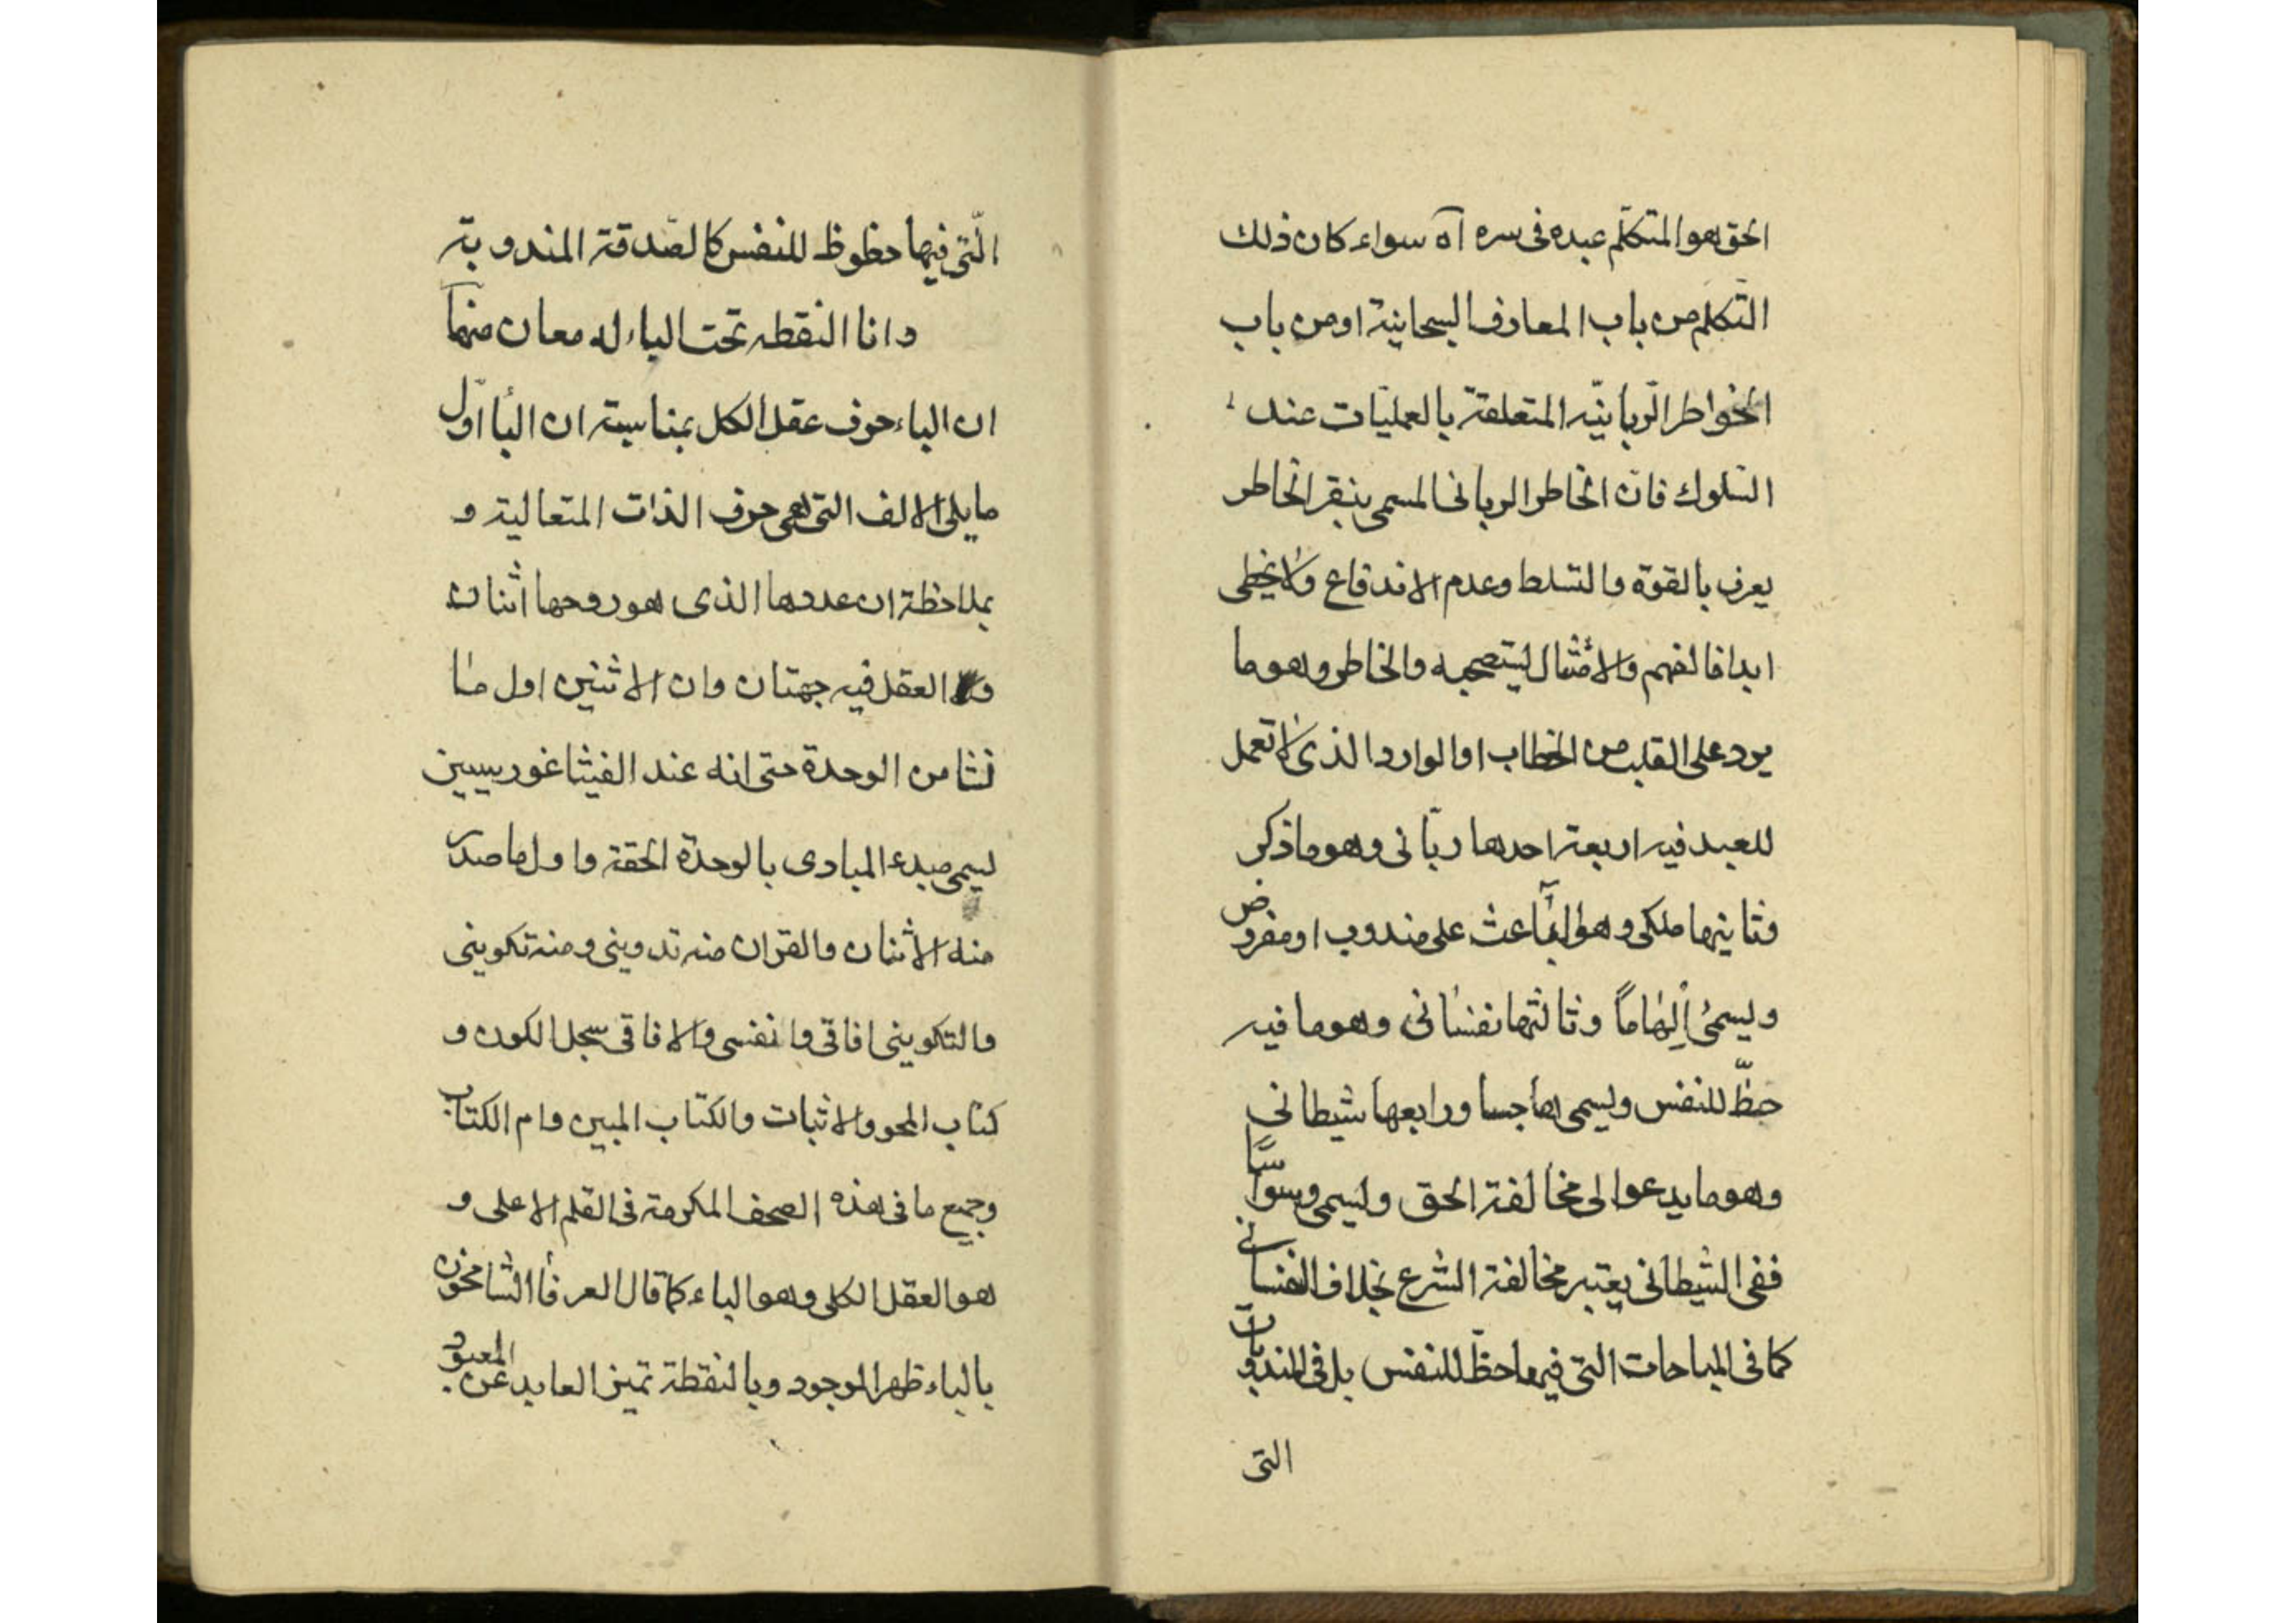 الحق هو المتكلم عبده فى سره اه سواء كان ذلك
التكلم من باب المعارف السبحانية او من باب
الخواطر الربانيّه المتعلقة بالعمليّات عند
السلوك فان الخاطر الربانى المسمى بنقر الخاطر
يعرف بالقوة والتسلط وعدم الاندفاع ولا يخطى
ابدا فالفهم والامثال والخاطر وهو ما
يرد على القلب من الخطاب او الوارد الذى لا تعمل
للعبد فيه اربعة احدها ربّانى وهو ما ذكر
وثانيها ملكى وهو الباعث على مندوب او مفروض
ويسمى إلهاماً وثالثها نفسانى وهو ما فيه
حظّ للنفس ويسمى هاجسا ورابعها شيطانى
وهو ما يدعوا لى مخالفة الحق ويسمى وسواسًا
ففى الشيطانى يعتبر مخالفة الشرع بخلاف النفسانى
كما فى المباحات التى فيها حظّ للنفس بل فى المندوبات
التى
الّتى فيها حظوظ للنفس كالصّدقة المندوبة
وانا النقطه تحت الباء له معان منها
ان الباء حرف عقل الكل بمناسبة ان الباء اوّل
ما يلى الالف التى هى حرف الذات المتعالية و
بملاحظة ان عددها الذى هو روحها اثنان
والعقل فيه جهتان وان الاثنين اول ما
نشا من الوحدة حتى انه عند الفيثاغورسيين
يسمى مبدء المبادى بالوحدة الحقة واول ما صدر
منه الاثنان والقران منه تدوينى ومنه تكوينى
والتكوينى افاقى وانفسى والافاقى سجل الكون و
كتاب المحو والاثبات والكتاب المبين وام الكتاب
وجميع ما فى هذه الصحف المكرمة فى القلم الاعلى و
هو العقل الكلى وهو الباء كما قال العرفأ الشامخون
بالباء ظهر الوجود وبالنقطة تميز العابد عن المعبود